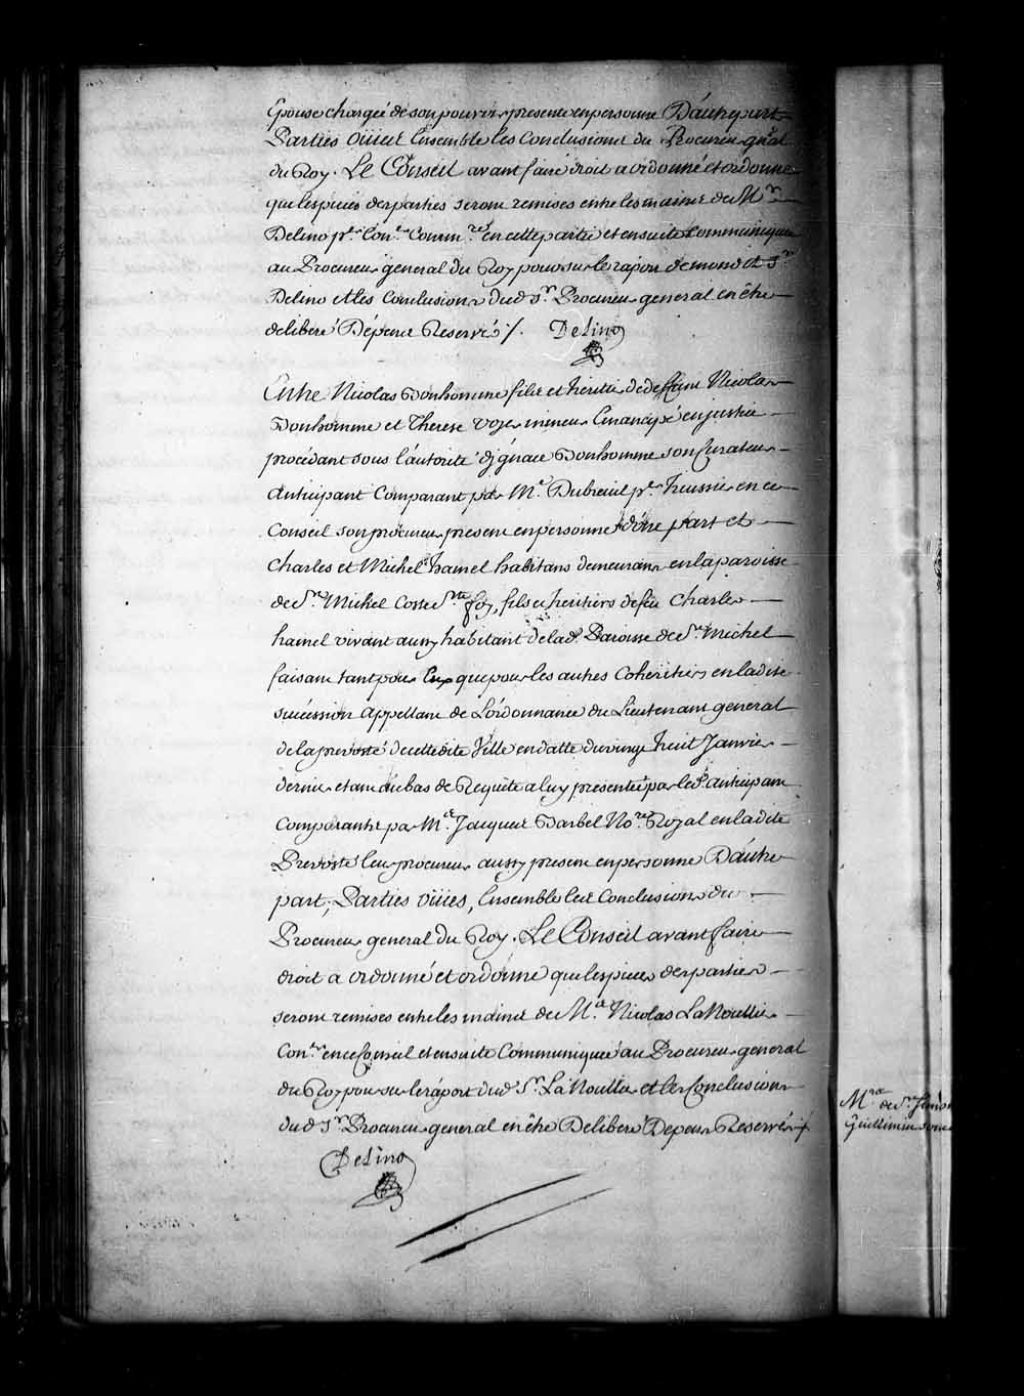 Epouse chargée de son pouvoir presente en personne D'autre part
Parties oüies Ensemble les Conclusions du Procureur gñal
du Roy. Le Conseil avant faire droit a ordonné et ordonne
que les pieces des parties seront remises entre les mains de M.r
Delino p.r Con.er Comm.re en cette partie et ensuite communiquées
au Procureur general du Roy pour sur le raport de mond.t S.r
Delino et les Conclusions dud S.r Procureur general en être
deliberé Dépens Reservés /. Delino
Entre Nicolas Bonhomme fils et heritier de deffunt Nicolas
Bonhomme et Therese mineur Emancipé en justice
procédant sous l'autorité d'jgnace Bonhomme son Curateur
anticipant Comparant par M.e Dubreuil p.r huissier en ce
Conseil son procureur present en personne d'une part et
Charles et Michel hamel habitans demeurans en la paroisse
de S.t Michel Coste S.te foy, fils et heritiers de feu Charles
hamel vivant aussy habitant de lad. Paroisse de S.t Michel
faisant tant pour Eux que pour les autres Coheritiers en ladite
succession appellans de L'ordonnance du Lieutenant general
de la prevosté de cette dite Ville en datte du vingt huit Janvier
dernier etant au bas de Requête a luy presentée par led. anticipant
Comparants par M.e Jacques Barbel No.re Royal en ladite
Prevosté leur procureur aussy present en personne D'autre
part, Parties oüies, Ensemble les Conclusions du
Procureur general du Roy. Le Conseil avant faire
droit a ordonné et ordonne que les pieces des parties
seront remises entre les mains de M.e Nicolas LaNoullier
Con.er en ce Conseil et ensuite Communiquées au Procureur general
du Roy pour sur le raport dud S.r LaNoullier et les Conclusions
dud S.r Procureur general en être Deliberé Depens Reservés /.
Delino
M.re
Guillimin